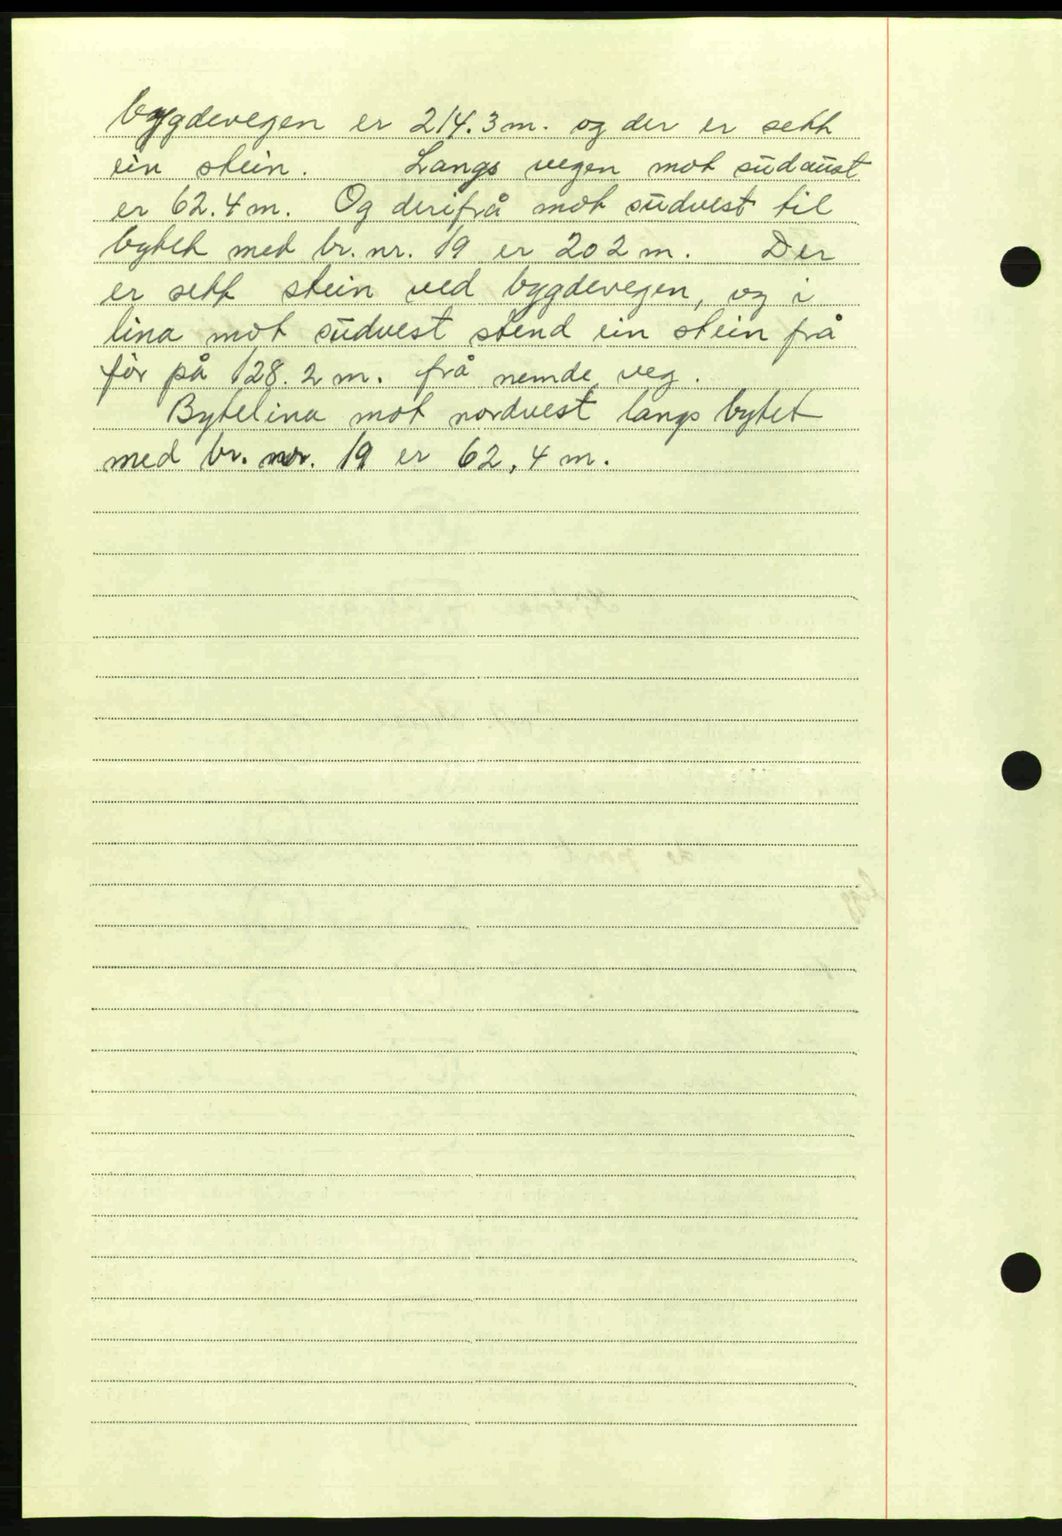 bygdevegen er 214.3 m. og der er sett
ein stein. Langs vegen mot südaust
er 62.4 m. Og derifrå mot südvest til
bytet med br. nr. 19 er 202 m. Der
er sett stein ved bygdevegen, og i
lina mot südvest stend ein stein frå
før på 128.2 m. frå nemde veg.
Bytelina mot nordvest langs bytet
med br. nr. 19 er 62,4 m.